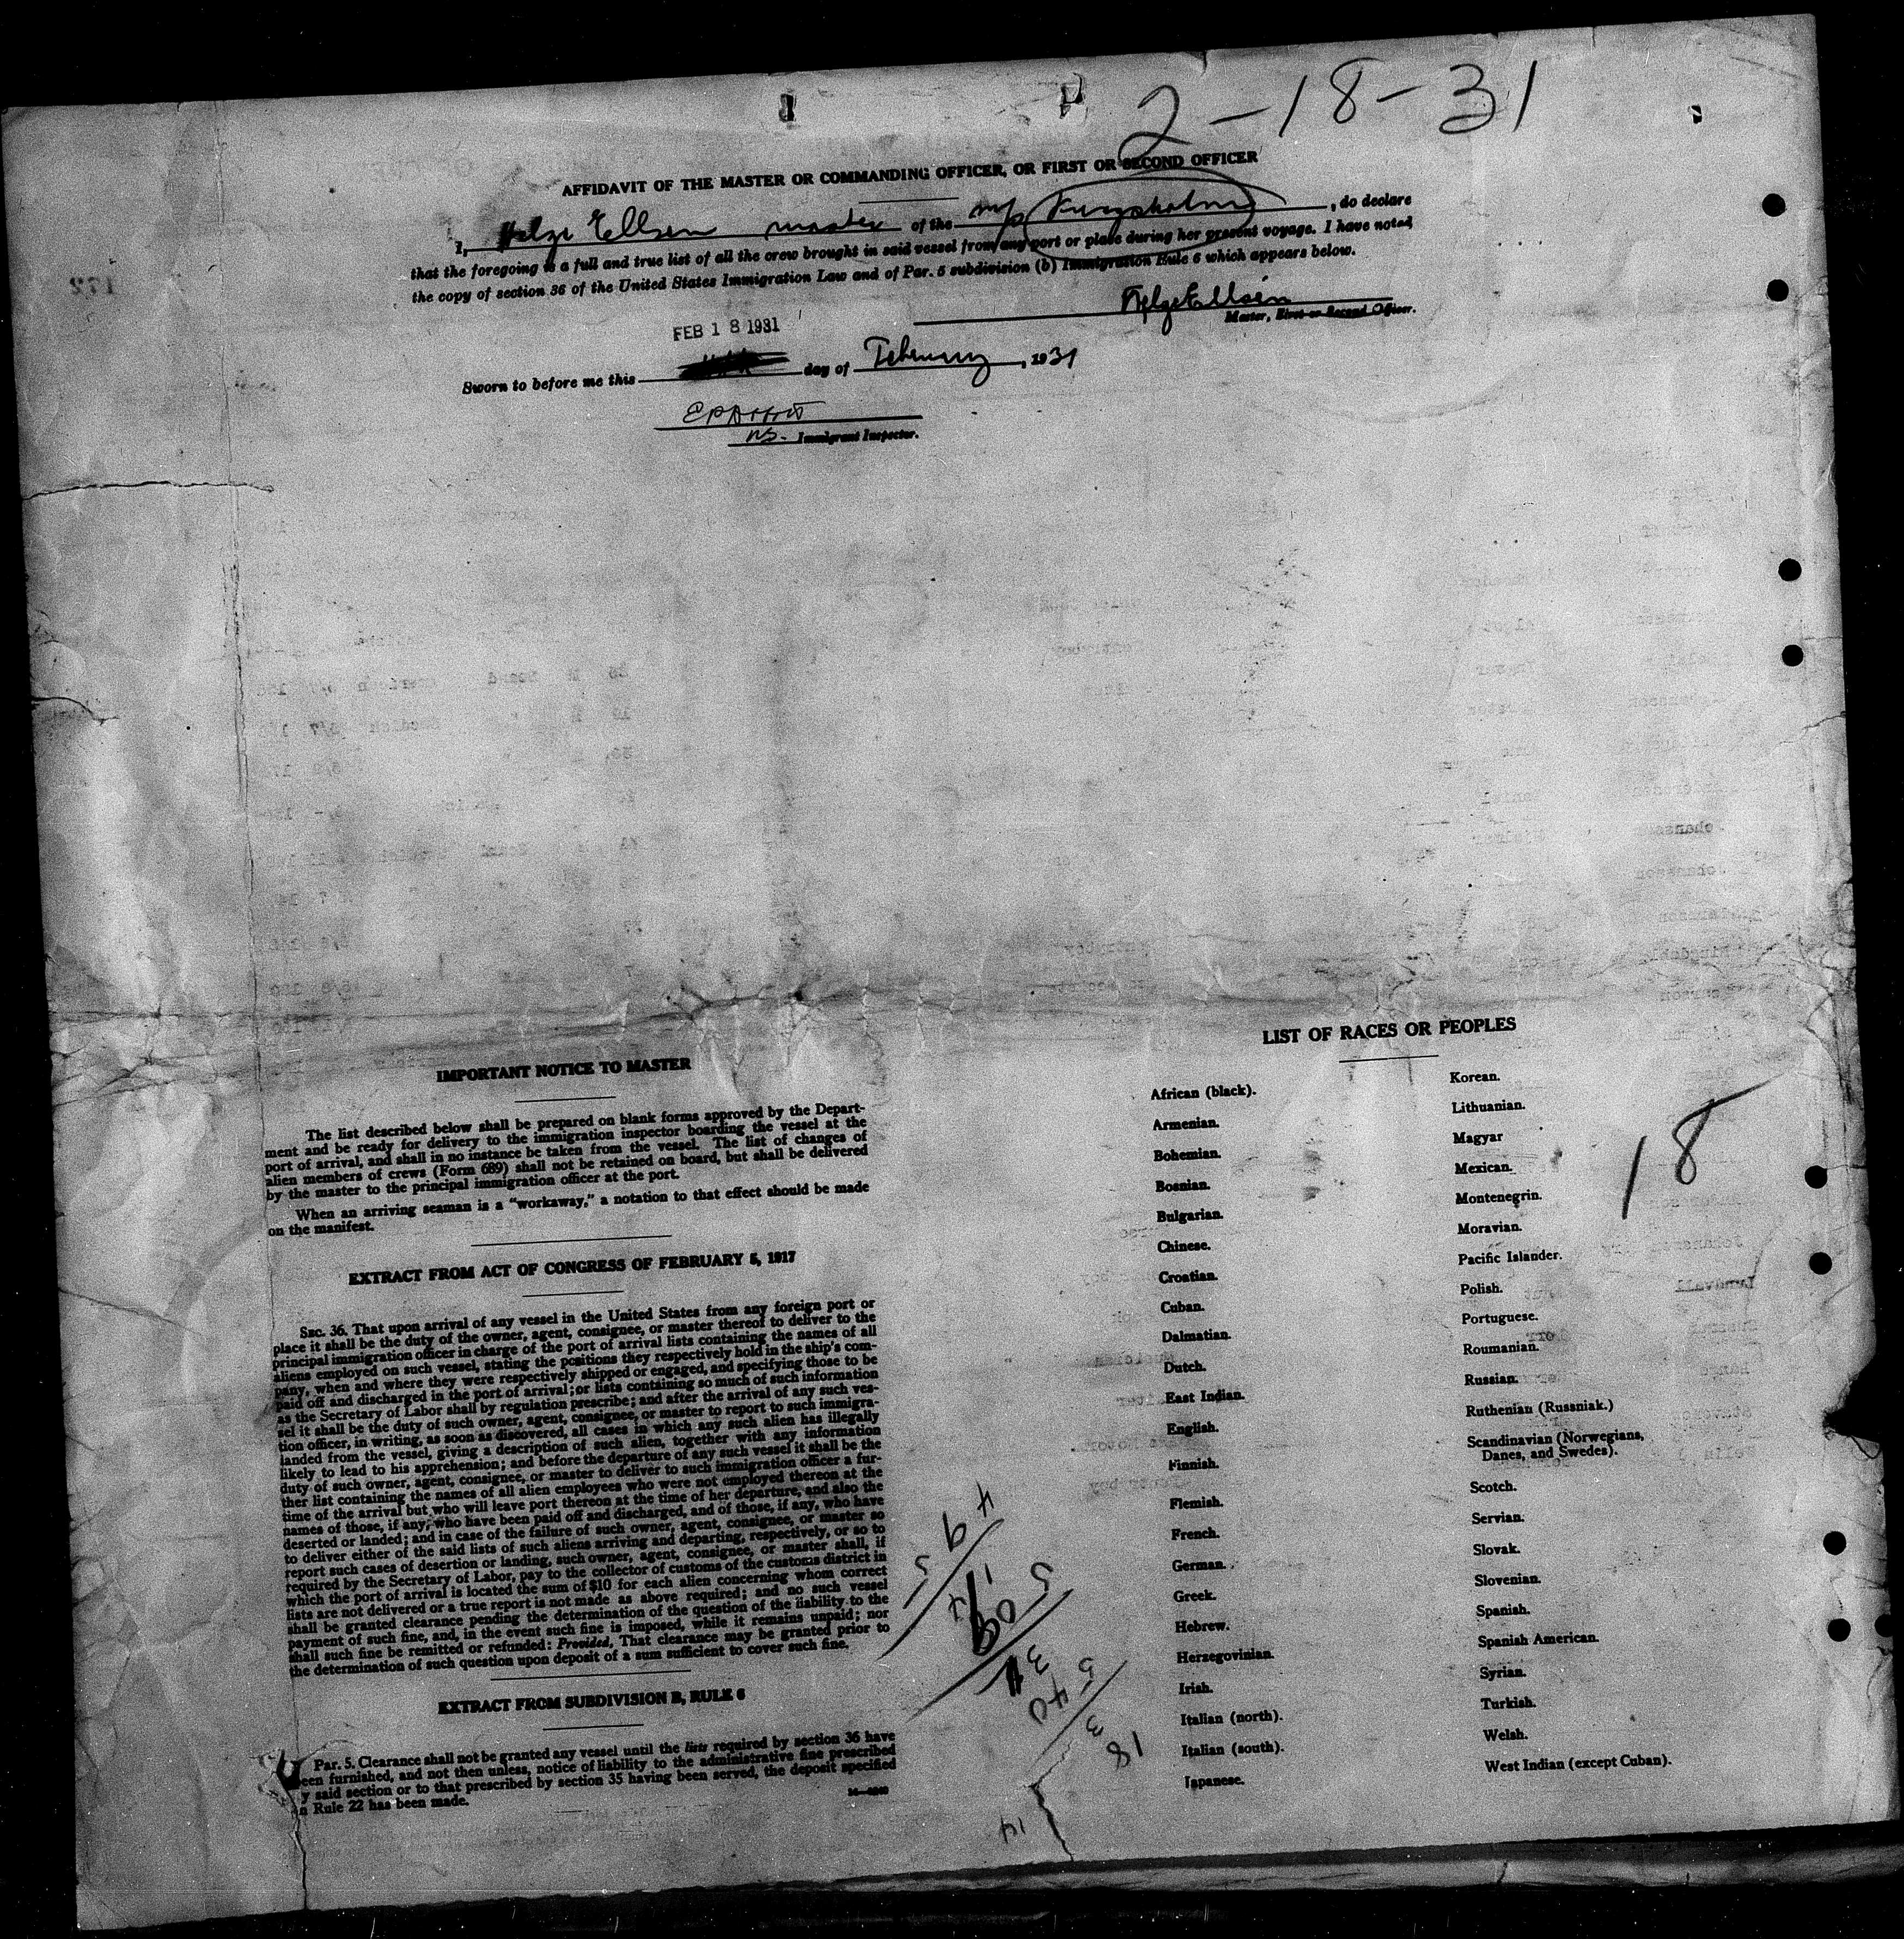 2-18-31
AFFIDAVIT OF THE MASTER OR COMMANDING OFFICER, OR FIRST OR SECOND OFFICER
I, Helge Ellsen master of the m/s Kungsholm, do declare
that the foregoing is a full and true list of all the crew brought in said vessel from any port or place during her present voyage. I have noted
the copy of section 36 of the United States Immigration Law and of Par. 5 subdivision (b) Immigration Rule 6 which appears below.
Helge Ellsén
Master, First or Second Officer.
FEB 18 1931
Sworn to before me this day of February, 1931
Immigrant Inspector.
172
IMPORTANT NOTICE TO MASTER
The list described below shall be prepared on blank forms approved by the Depart-
ment and be ready for delivery to the immigration inspector boarding the vessel at the
port of arrival, and shall in no instance be taken from the vessel. The list of changes of
alien members of crews (Form 689) shall not be retained on board, but shall be delivered
by the master to the principal immigration officer at the port.
When an arriving seaman is a "workaway," a notation to that effect should be made
on the manifest.
EXTRACT FROM ACT OF CONGRESS OF FEBRUARY 5, 1917
SEC. 36. That upon arrival of any vessel in the United States from any foreign port or
place it shall be the duty of the owner, agent, consignee, or master thereof to deliver to the
principal immigration officer in charge of the port of arrival lists containing the names of all
aliens employed on such vessel, stating the positions they respectively hold in the ship's com-
pany, when and where they were respectively shipped or engaged, and specifying those to be
paid off and discharged in the port of arrival; or lists containing so much of such information
as the Secretary of Labor shall by regulation prescribe; and after the arrival of any such ves-
sel it shall be the duty of such owner, agent, consignee, or master to report to such immigra-
tion officer, in writing, as soon as discovered, all cases in which any such alien has illegally
landed from the vessel, giving a description of such alien, together with any information
likely to lead to his apprehension; and before the departure of any such vessel it shall be the
duty of such owner, agent, consignee, or master to deliver to such immigration officer a fur-
ther list containing the names of all alien employees who were not employed thereon at the
time of the arrival but who will leave port thereon at the time of her departure, and also the
names of those, if any, who have been paid off and discharged, and of those, if any, who have
deserted or landed; and in case of the failure of such owner, agent, consignee, or master so
to deliver either of the said lists of such aliens arriving and departing, respectively, or so to
report such cases of desertion or landing, such owner, agent, consignee, or master shall, if
required by the Secretary of Labor, pay to the collector of customs of the customs district in
which the port of arrival is located the sum of $10 for each alien concerning whom correct
lists are not delivered or a true report is not made as above required; and no such vessel
shall be granted clearance pending the determination of the question of the liability to the
payment of such fine, and, in the event such fine is imposed, while it remains unpaid; nor
shall such fine be remitted or refunded: Provided, That clearance may be granted prior to
the determination of such question upon deposit of a sum sufficient to cover such fine.
EXTRACT FROM SUBDIVISION B, RULE 6
Par. 5. Clearance shall not be granted any vessel until the lists required by section 36 have
been furnished, and not then unless, notice of liability to the administrative fine prescribed
y said section or to that prescribed by section 35 having been served, the deposit specified
in Rule 22 has been made.
LIST OF RACES OR PEOPLES
African (black).
Armenian.
Bohemian.
Bosnian.
Bulgarian.
Chinese.
Croatian.
Cuban.
Dalmatian.
Dutch.
East Indian.
English.
Finnish.
Flemish.
French.
German.
Greek.
Hebrew.
Herzegovinian.
Irish.
Italian (north).
Italian (south).
Japanese.
Korean.
Lithuanian.
Magyar
Mexican.
Montenegrin.
Moravian.
Pacific Islander.
Polish.
Portuguese.
Roumanian.
Russian.
Ruthenian (Russniak.)
Scandinavian (Norwegians,
Danes, and Swedes).
Scotch.
Servian.
Slovak.
Slovenian.
Spanish.
Spanish American.
Syrian.
Turkish.
Welsh.
West Indian (except Cuban).
18
49
5
5
3
40
5
3
18
14